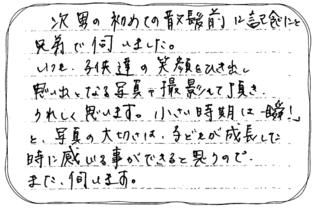 次男の初めての散髪前に記念にと
兄弟で伺いました。
いつも、子供達の笑顔をひき出し
思い出となる写真で撮影して頂き、
うれしく思います。小さい時期は一瞬!
と、写真の大切さは、子どもが成長した
時に感じる事ができると思うので、
また、伺います。